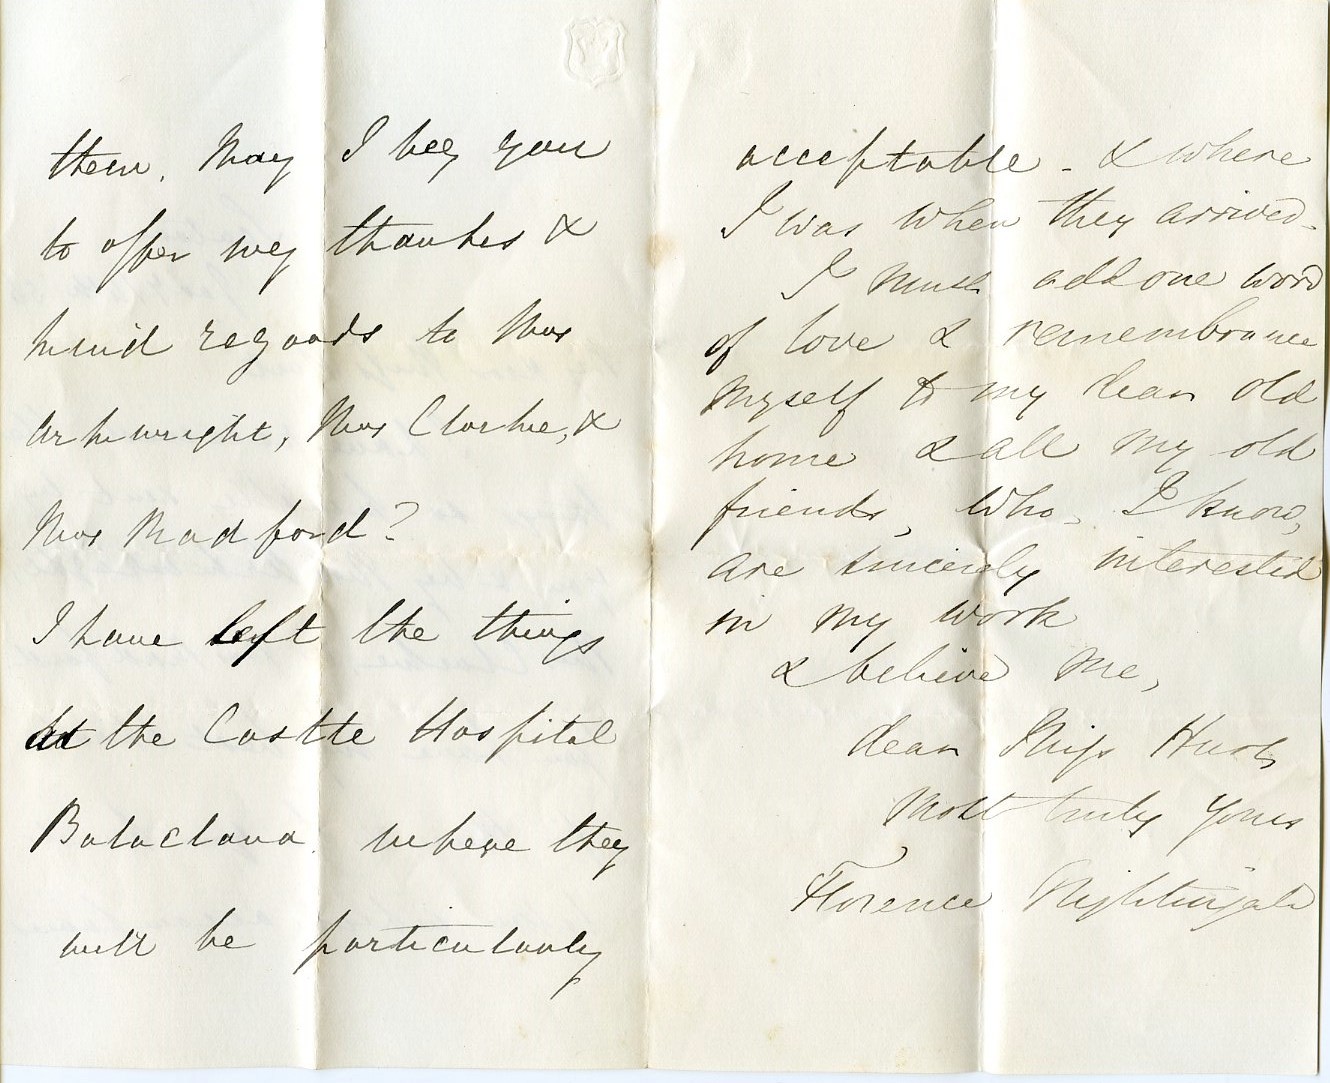 them. May I beg you
to offer my thanks &
kind regards to Mrs
Arkwright, Mrs Clarke, &
Mrs Radford?
I have left the things
at the Castle Hospital
Balaclava. where they
will be particularly
acceptable - & where
I was when they arrived -
I must add one word
of love & remembrance
myself to my dear old
home & all my old
friends, who, I know,
are sincerely interested
in my work
& believe me,
dear Miss Hurt
Most truly yours
Florence Nightingale